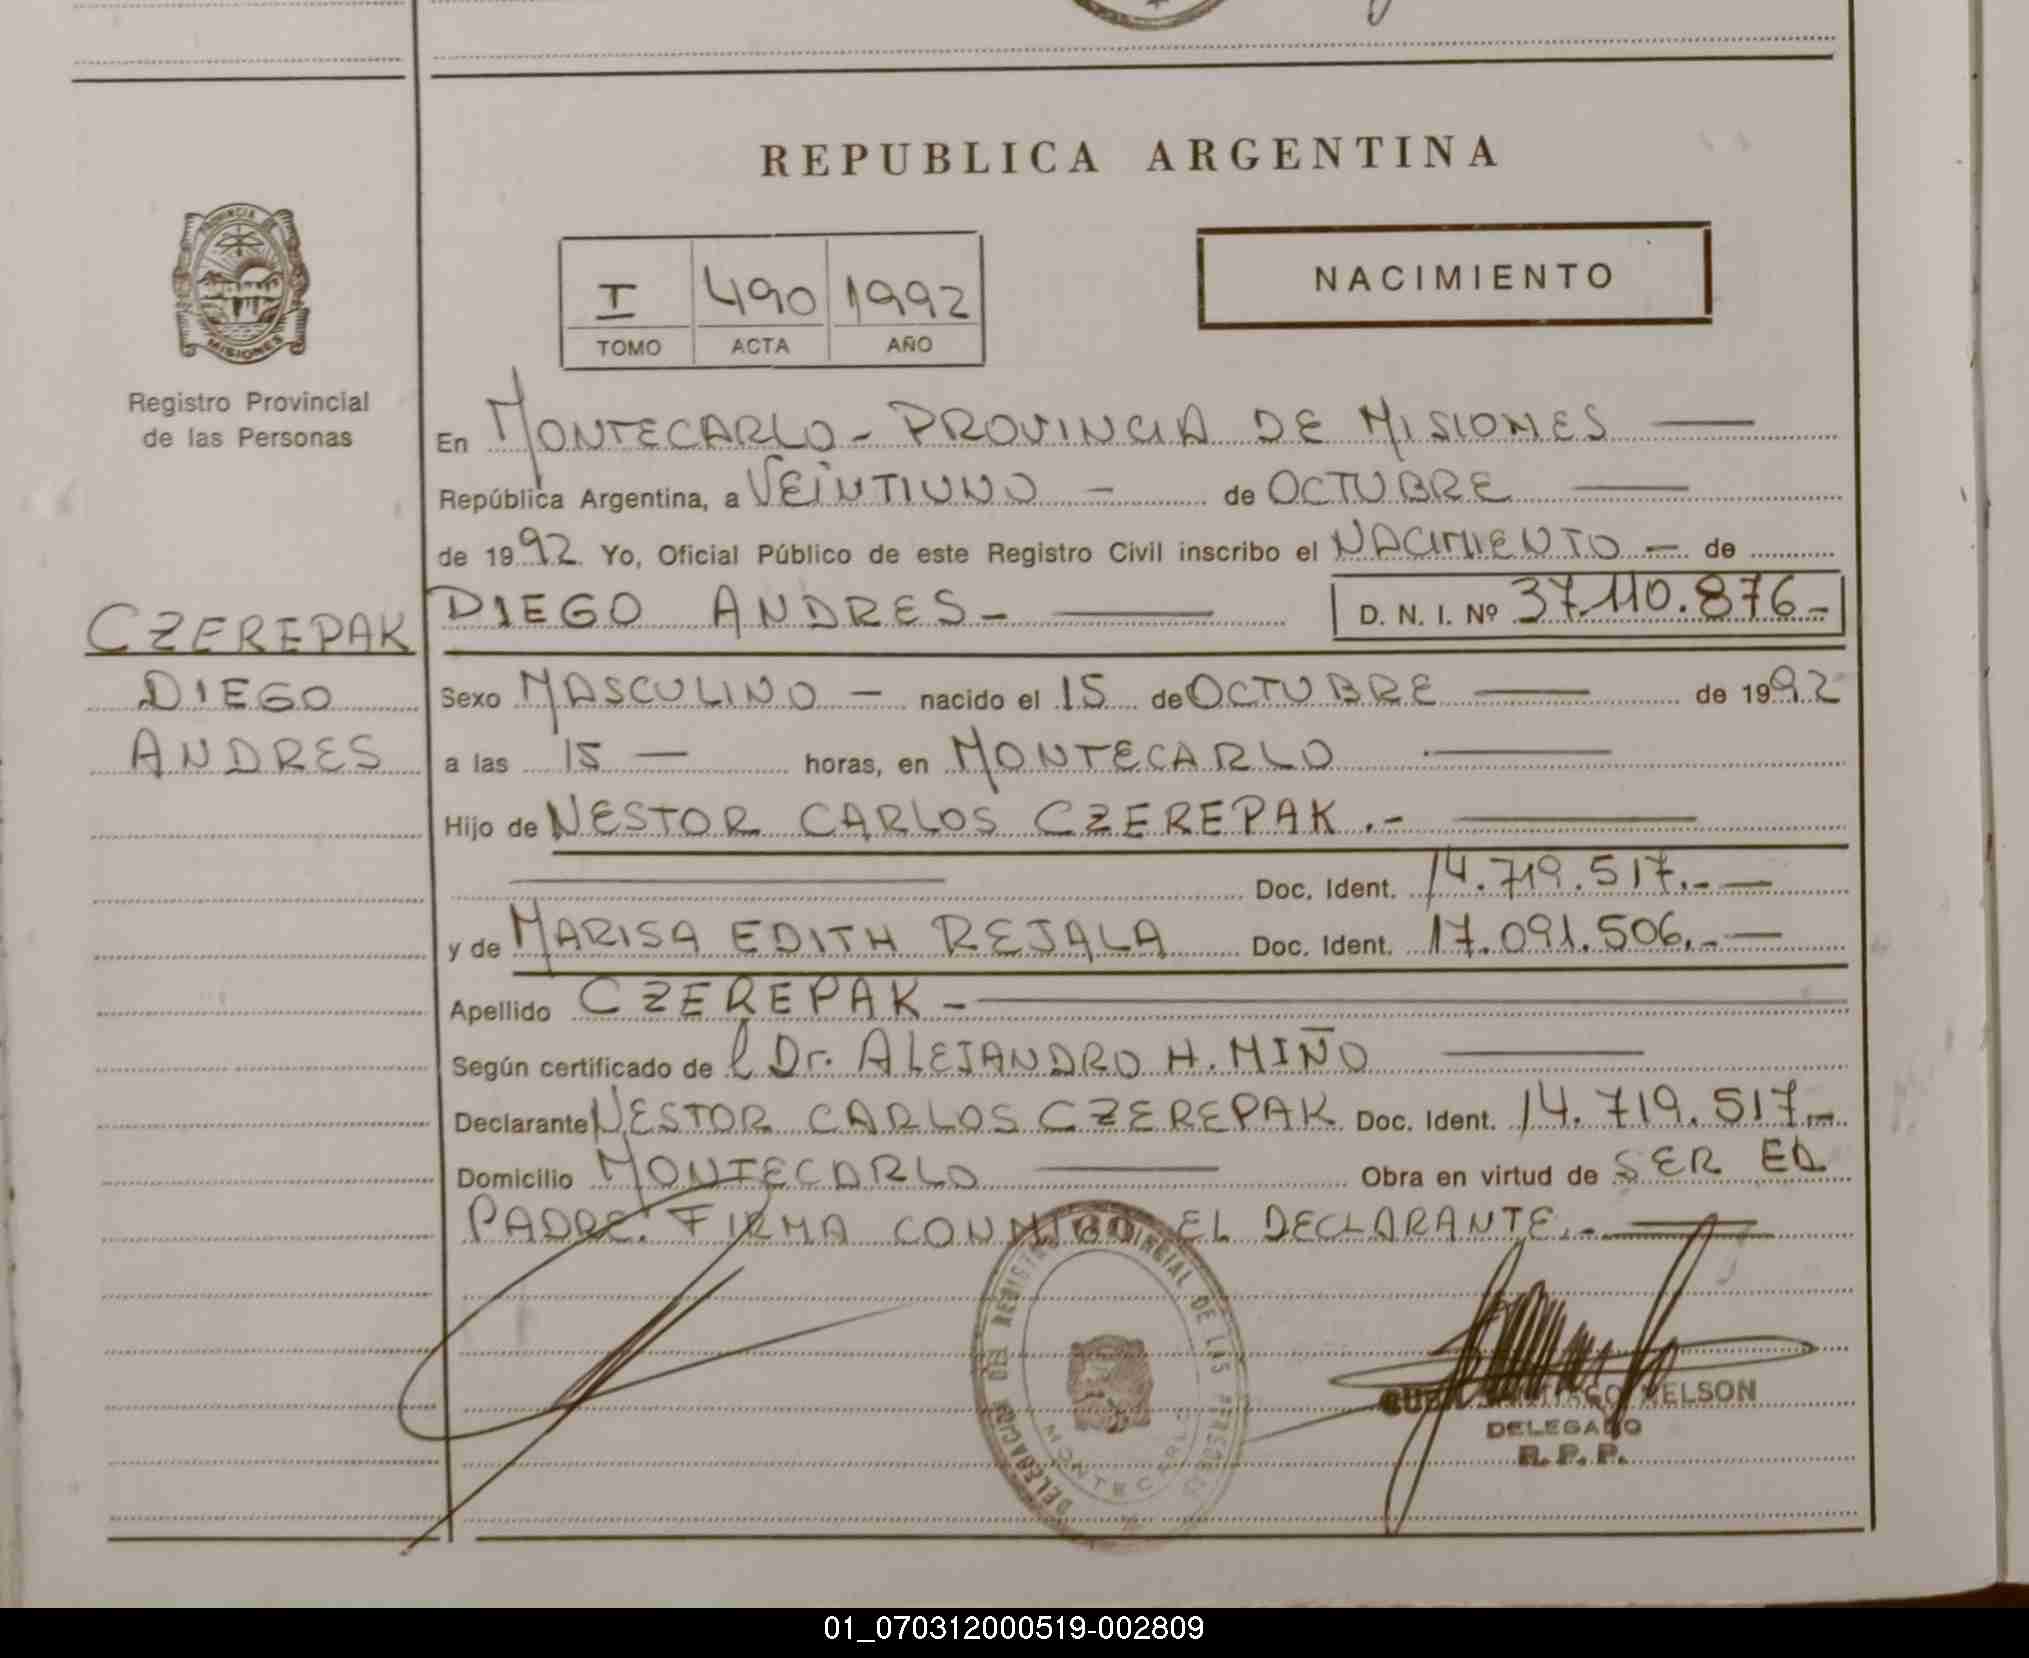 REPUBLICA ARGENTINA
PROVINCIA DE
MISIONES
Registro Provincial
de las Personas
I 490 1992
TOMO ACTA AÑO
NACIMIENTO
En MONTECARLO - PROVINCIA DE MISIONES
República Argentina, a VEINTIUNO - de OCTUBRE
de 1992 Yo, Oficial Público de este Registro Civil inscribo el NACIMIENTO - de
DIEGO ANDRES - D. N. I. Nº 37.110.876.-
CZEREPAK
DIEGO
ANDRES
Sexo MASCULINO - nacido el 15 de OCTUBRE de 1992
a las 15 — horas, en MONTECARLO
Hijo de NESTOR CARLOS CZEREPAK .-
Doc. Ident. 14.719.517.-
y de MARISA EDITH REJALA Doc. Ident. 17.091.506.-
Apellido CZEREPAK -
Según certificado de l Dr. ALEJANDRO H. MIÑO
Declarante NESTOR CARLOS CZEREPAK Doc. Ident. 14.719.517.-
Domicilio MONTECARLO Obra en virtud de SER EL
PADRE. FIRMA CONMIGO EL DECLARANTE.-
DELEGACION DEL REGISTRO PROVINCIAL DE LAS PERSONAS
MONTECARLO
SANTIAGO NELSON
DELEGADO
R. P. P.
01_070312000519-002809